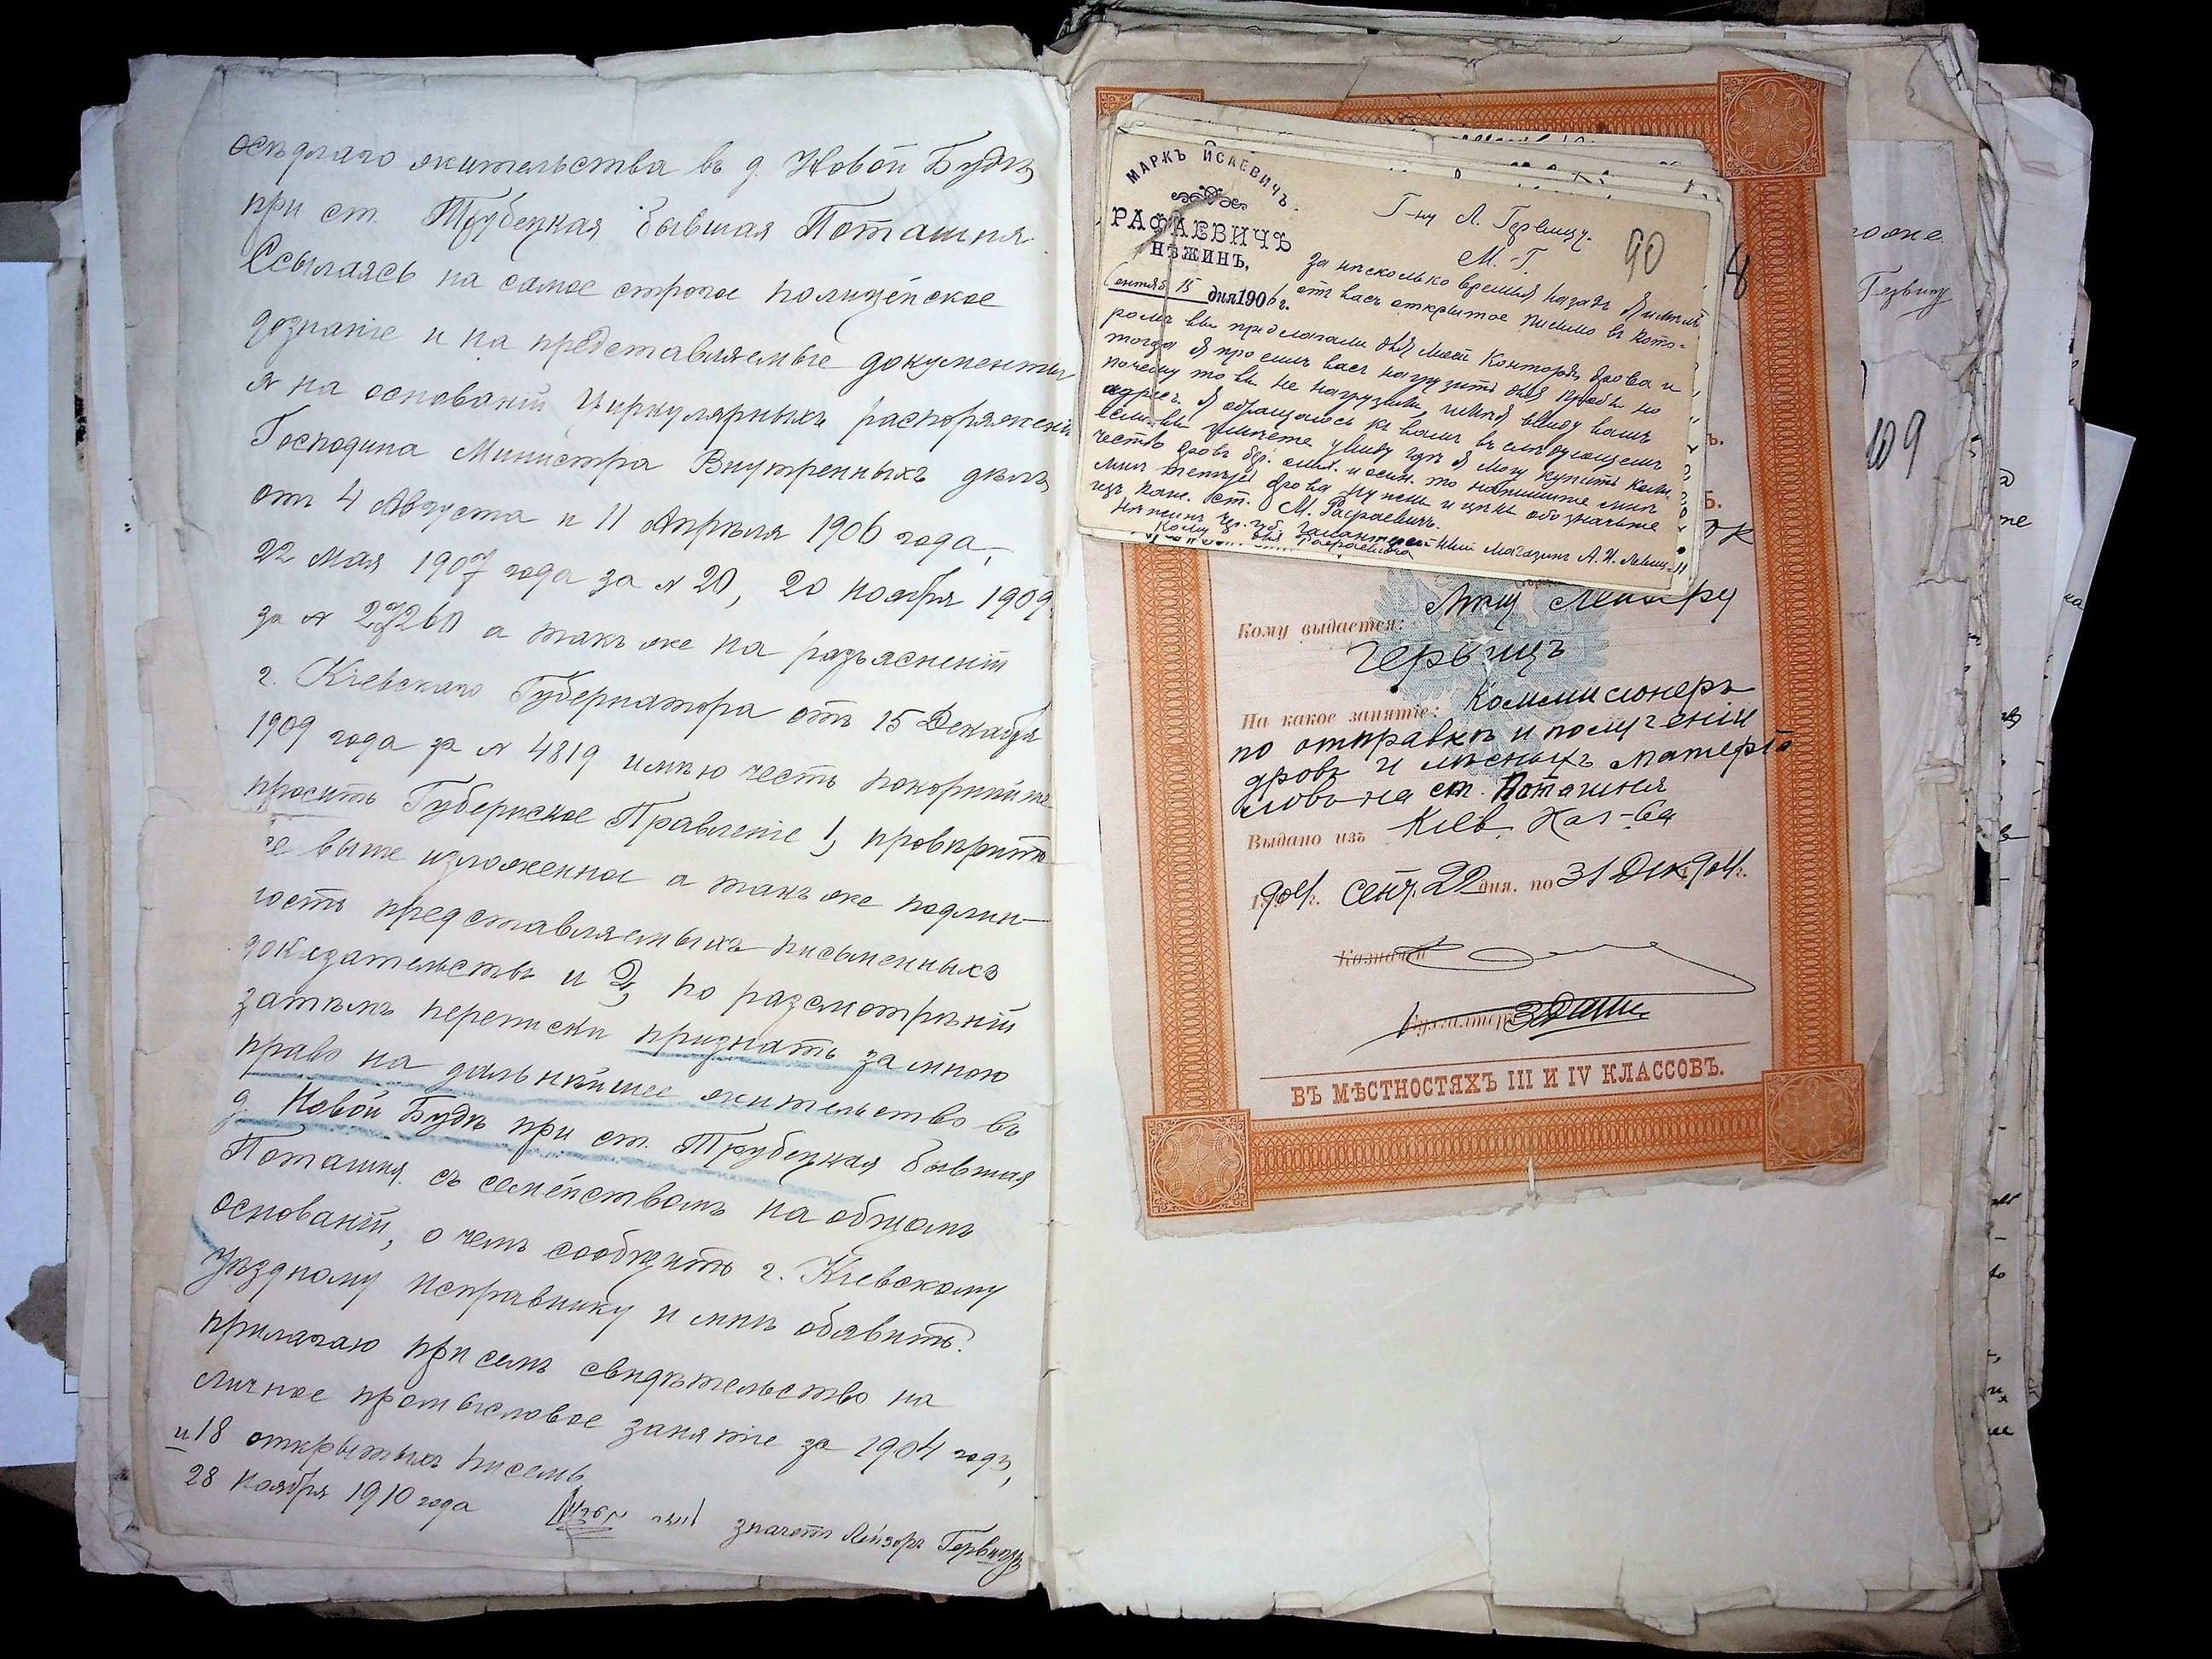 осѣдлаго жительства въ д. Новой Будѣ
при ст. Трубецкая бывшая Поташня.
Ссылаясь на самое строгое полицейское
дознаніе и на представляемые документы
я на основаніи Циркулярныхъ распоряженій
Господина Министра Внутренныхъ дѣлъ
отъ 4 Августа и 11 Апрѣля 1906 года,
22 Мая 1907 года за № 20, 20 Ноября 1909
за № 27260 а такъ же на разъясненіи
г. Кіевскаго Губернатора отъ 15 Декабря
1909 года за № 4819 имѣю честь покорнѣйше
просить Губернское Правленіе 1, провѣрить
се выше изложенное а такъ же подлин-
ность представляемыхъ письменныхъ
доказательствъ и 2, по разсмотрѣніи
затѣмъ переписки признать за мною
право на дальнѣйшее жительство въ
д. Новой Будѣ при ст. Трубецкая бывшая
Поташня. съ семействомъ на общемъ
основаніи, о чемъ сообщить г. Кіевскому
Уѣздному Исправнику и мнѣ обявить.
прилагаю при семъ свидѣтельство на
личное промысловое занятіе за 1904 годъ,
и 18 открытыхъ писемъ
28 Ноября 1910 года
значетъ Лейзоръ Гервицъ
МАРКЪ ИСАЕВИЧЪ
РАФАЕВИЧЪ
НѢЖИНЪ,
Сентяб 15 дня 1906 г.
90
Г-ну Л. Гервицу.
М. Г.
За нѣсколько время назадъ Я имѣлъ
отъ васъ открытое письмо въ кото-
ромъ вы предлогали для моей Конторы дрова и
тогда Я просилъ васъ нагрузить для пробы но
почему то вы не нагрузили, имѣя ввиду вашъ
адресъ. Я обращаюсь къ вамъ въ слѣдующемъ
если вы можете увижу гдѣ Я могу купить коли-
чество дровъ бр. ольх. и осин. то напишите мнѣ
мнѣ теперь дрова нужны и цѣны обозначьте
М. Рафаевичъ.
Нѣжинъ Чер. губ. Галантерейный магазинъ А. И.
Кому для Рафаевича
Кому выдается: Лейзеру
Гервицъ
На какое занятіе: Коммисіонеръ
по отправкѣ и полученія
дровъ и лѣсныхъ матерія
ловъ на ст. Поташня
Выдано изъ Кіев. Каз-ва
1904 г. Сент. 22 дня. по 31 Дек 1904 г.
Казначей
Бухгалтеръ
ВЪ МѢСТНОСТЯХЪ III И IV КЛАССОВЪ.
Гервиц
109